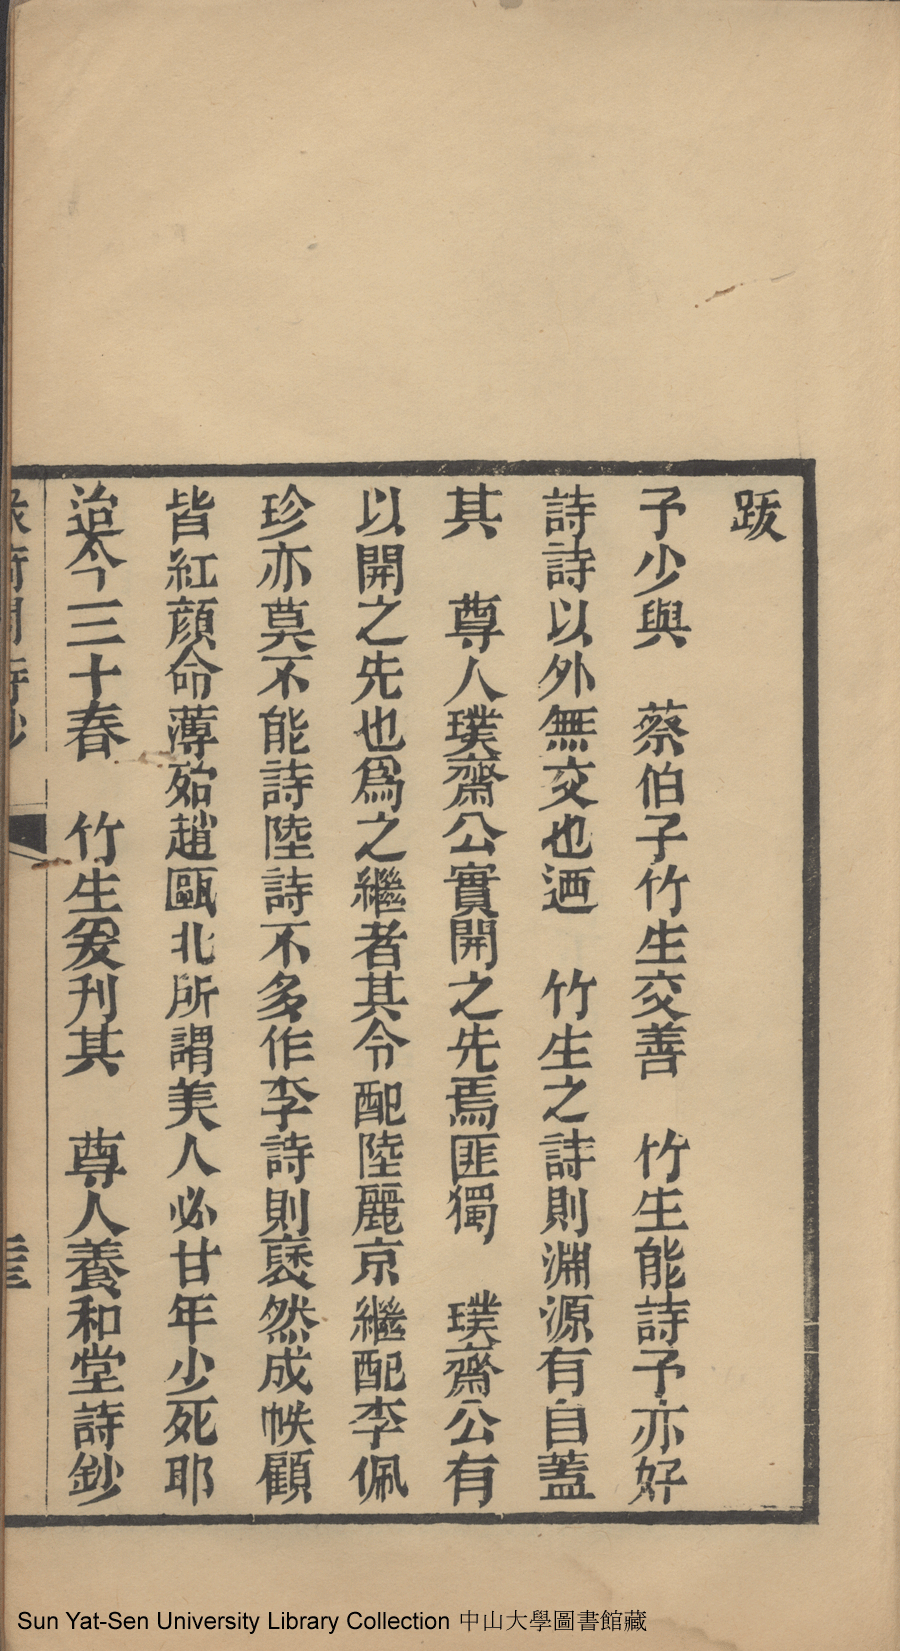 跋
予少與　蔡伯子竹生交善　竹生能詩予亦好
詩詩以外無交也迺　竹生之詩則淵源有自蓋
其　尊人璞齋公實開之先焉匪獨　璞齋公有
以開之先也爲之繼者其令配陸麗京繼配李佩
珍亦莫不能詩陸詩不多作李詩則裒然成帙顧
皆紅顔命薄殆趙甌北所謂美人必甘年少死耶
迨今三十春　竹生爰刊其　尊人養和堂詩鈔
Sun Yat-Sen University Library Collection 中山大學圖書館藏